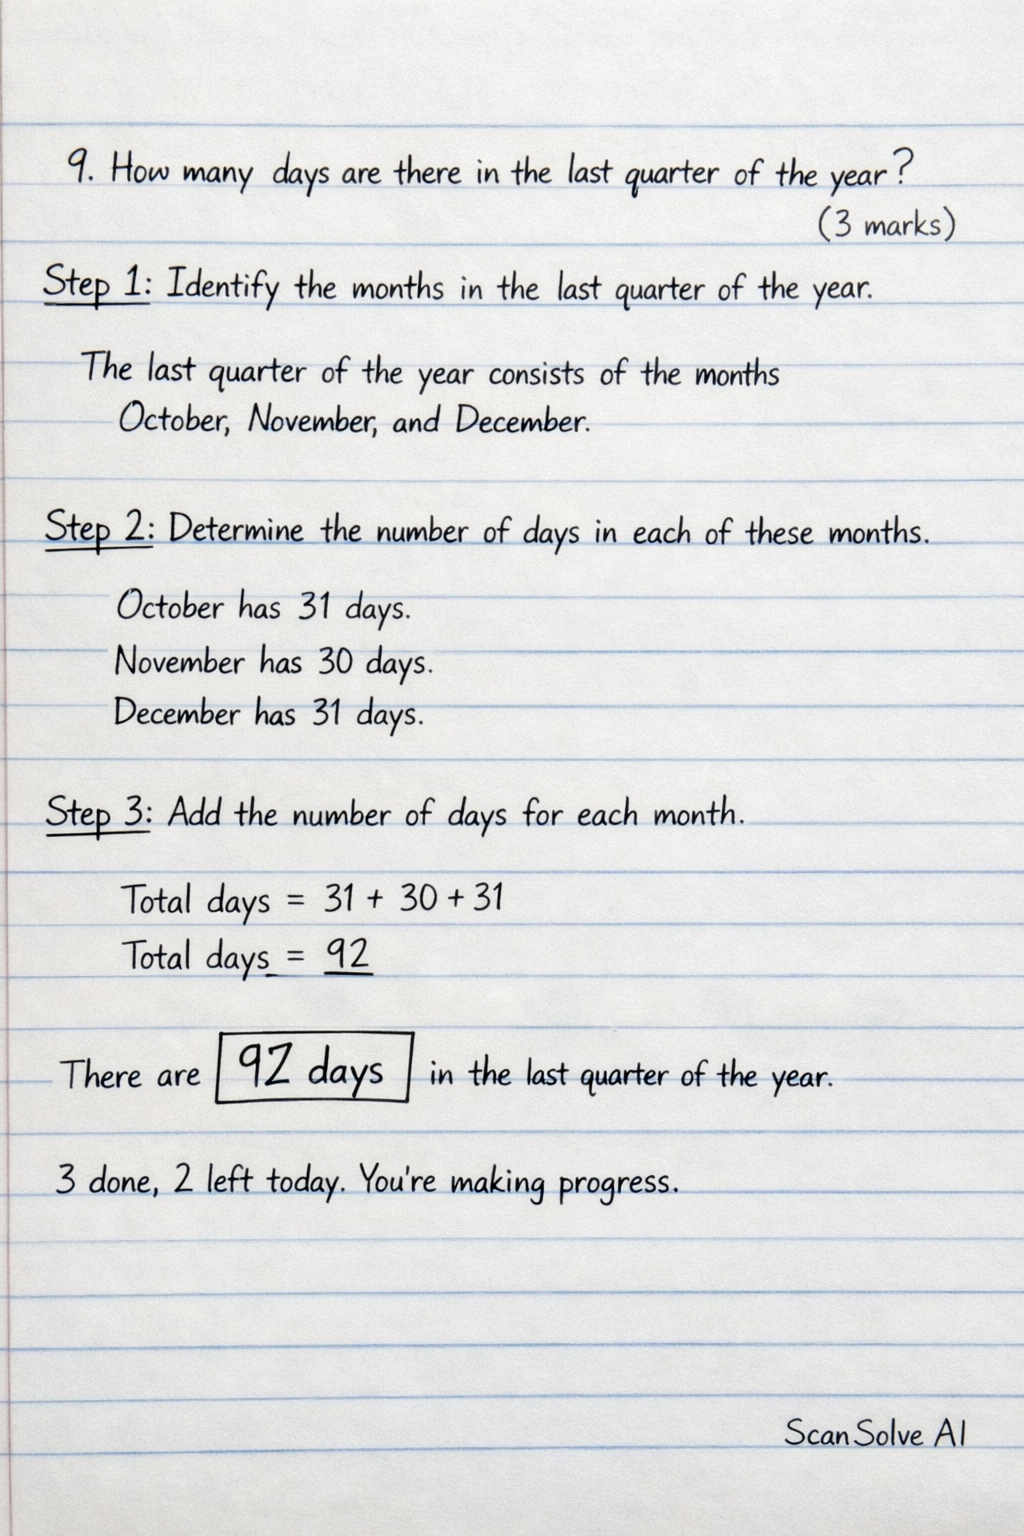 9. How many days are there in the last quarter of the year?
(3 marks)
Step 1: Identify the months in the last quarter of the year.
The last quarter of the year consists of the months
October, November, and December.
Step 2: Determine the number of days in each of these months.
October has 31 days.
November has 30 days.
December has 31 days.
Step 3: Add the number of days for each month.
Total days = 31 + 30 + 31
Total days = 92
There are 92 days in the last quarter of the year.
3 done, 2 left today. You're making progress.
ScanSolve AI